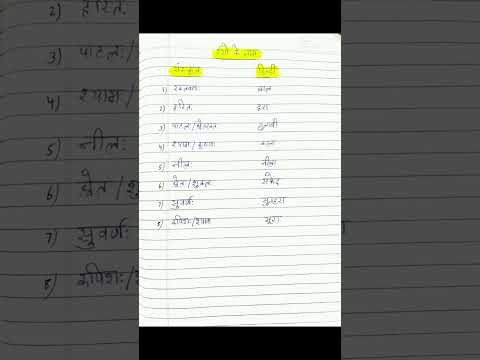 रंगो के नाम
संस्कृत हिन्दी
1) रक्तवर्णः लाल
2) हरितः हरा
3) पाटलः/श्वेतरक्त गुलाबी
4) श्यामः/कृष्णः काला
5) नीलः नीला
6) श्वेत/शुक्लः सफेद
7) सुवर्णः सुनहरा
8) कपिशः/श्याव भूरा
2) हरितः
3) पाटलः/
4) श्यामः/
5) नीलः
6) श्वेत/शु
7) सुवर्णः
8) कपिशः/